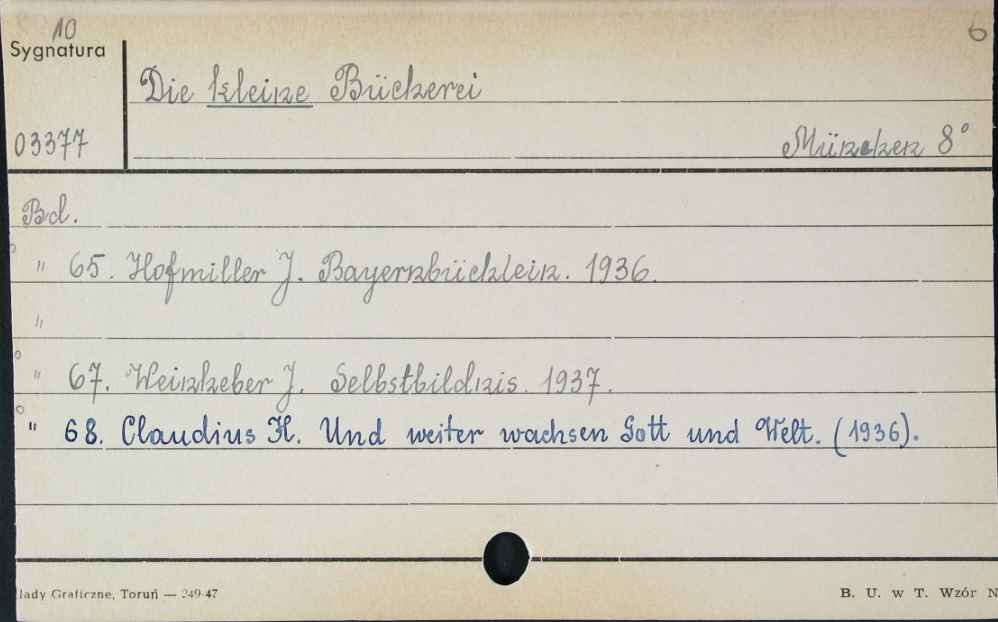 10 6
Sygnatura
Die kleine Bücherei
03377
München 8°
Bd.
" 65. Hofmiller J. Bayernbüchlein. 1936.
"
" 67. Weinheber J. Selbstbildnis. 1937.
" 68. Claudius H. Und weiter wachsen Gott und Welt. (1936).
łady Graficzne, Toruń — 249-47 B. U. w T. Wzór N